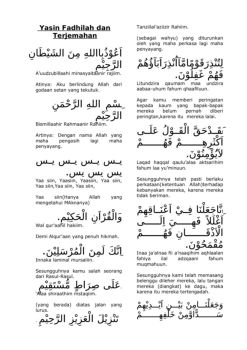 Yasin Fadhilah dan
Terjemahan
أَعُوْذُبِااللهِ مِنَ الشَّيْطَانِ
الرَّجِيْمِ
A'uudzubillaahi minasyaithaanir rajiim.
Artinya: Aku berlindung Allah dari
godaan setan yang kekutuk.
بِسْمِ اللهِ الرَّحْمَنِ
الرَّحِيْمِ
Bismillaahir Rahmaanir Rahiim.
Artinya: Dengan nama Allah yang
maha pengasih lagi maha
penyayang.
يس يس يس يس
يس يس يس.
Yaa siin, Yaasiin, Yaasiin, Yaa siin,
Yaa siin,Yaa siin, Yaa siin,
Yaa siin(Hanya Allah yang
mengetahui MAknanya)
وَالْقُرْآنِ الْحَكِيْمِ.
Wal qur'aanil hakiim.
Demi Alqur'aan yang penuh hikmah,
اِنَّكَ لَمِنَ الْمُرْسَلِيْنَ.
Innaka laminal mursaliin.
Sesungguhnya kamu salah seorang
dari Rasul-Rasul.
عَلَى صِرَاطٍ مُسْتَقِيْمٍ
Alaa shiraathim mstaqiim.
(yang berada) diatas jalan yang
lurus.
تَنْزِيْلَ الْعَزِيْزِ الرَّحِيْمِ
Tanziilal'laziizir Rahiim.
(sebagai wahyu) yang diturunkan
oleh yang maha perkasa lagi maha
penyayang.
لِتُنْذِرَقَوْمًامَّآاُنْذِرَآبَآؤُهُمْ
فَهُمْ غَفِلُوْنَ.
Litundzira qaumam maa undzira
aabaa-uhum fahum ghaafiluun.
Agar kamu memberi peringatan
kepada kaum yang bapak-bapak
mereka belum pernah diberi
peringatan,karena itu mereka lalai.
لَقَدْحَقَّ الْقَوْلُ عَلَى
اَكْثَرِهِمْ فَهُمْ
لَايُؤْمِنُوْنَ.
Laqad haqqal qaulu'alaa aktsarihim
fahum laa yu'minuun.
Sesungguhnya telah pasti berlaku
perkataan(ketentuan Allah)terhadap
kebanyakan mereka, karena mereka
tidak beriman.
اِنَّاجَعَلْنَا فِيْ اَعْنَاقِهِمْ
اَغْلٰلًا فَهِيَ اِلَى
الْاَذْقَانِ فَهُمْ
مُقْمَحُوْنَ.
Inaa ja'alnaa fii a'naaqihim aghlaalan
fahiya ilal adzqaani fahum
muqmahuun.
Sesungguhnya kami telah memasang
belenggu dileher mereka, lalu tangan
mereka (diangkat) ke dagu, maka
karena itu mereka tertengadah.
وَجَعَلْنَامِنْ بَيْنِ اَيْدِيْهِمْ
سَدًّاوَّمِنْ خَلْفِهِمْ